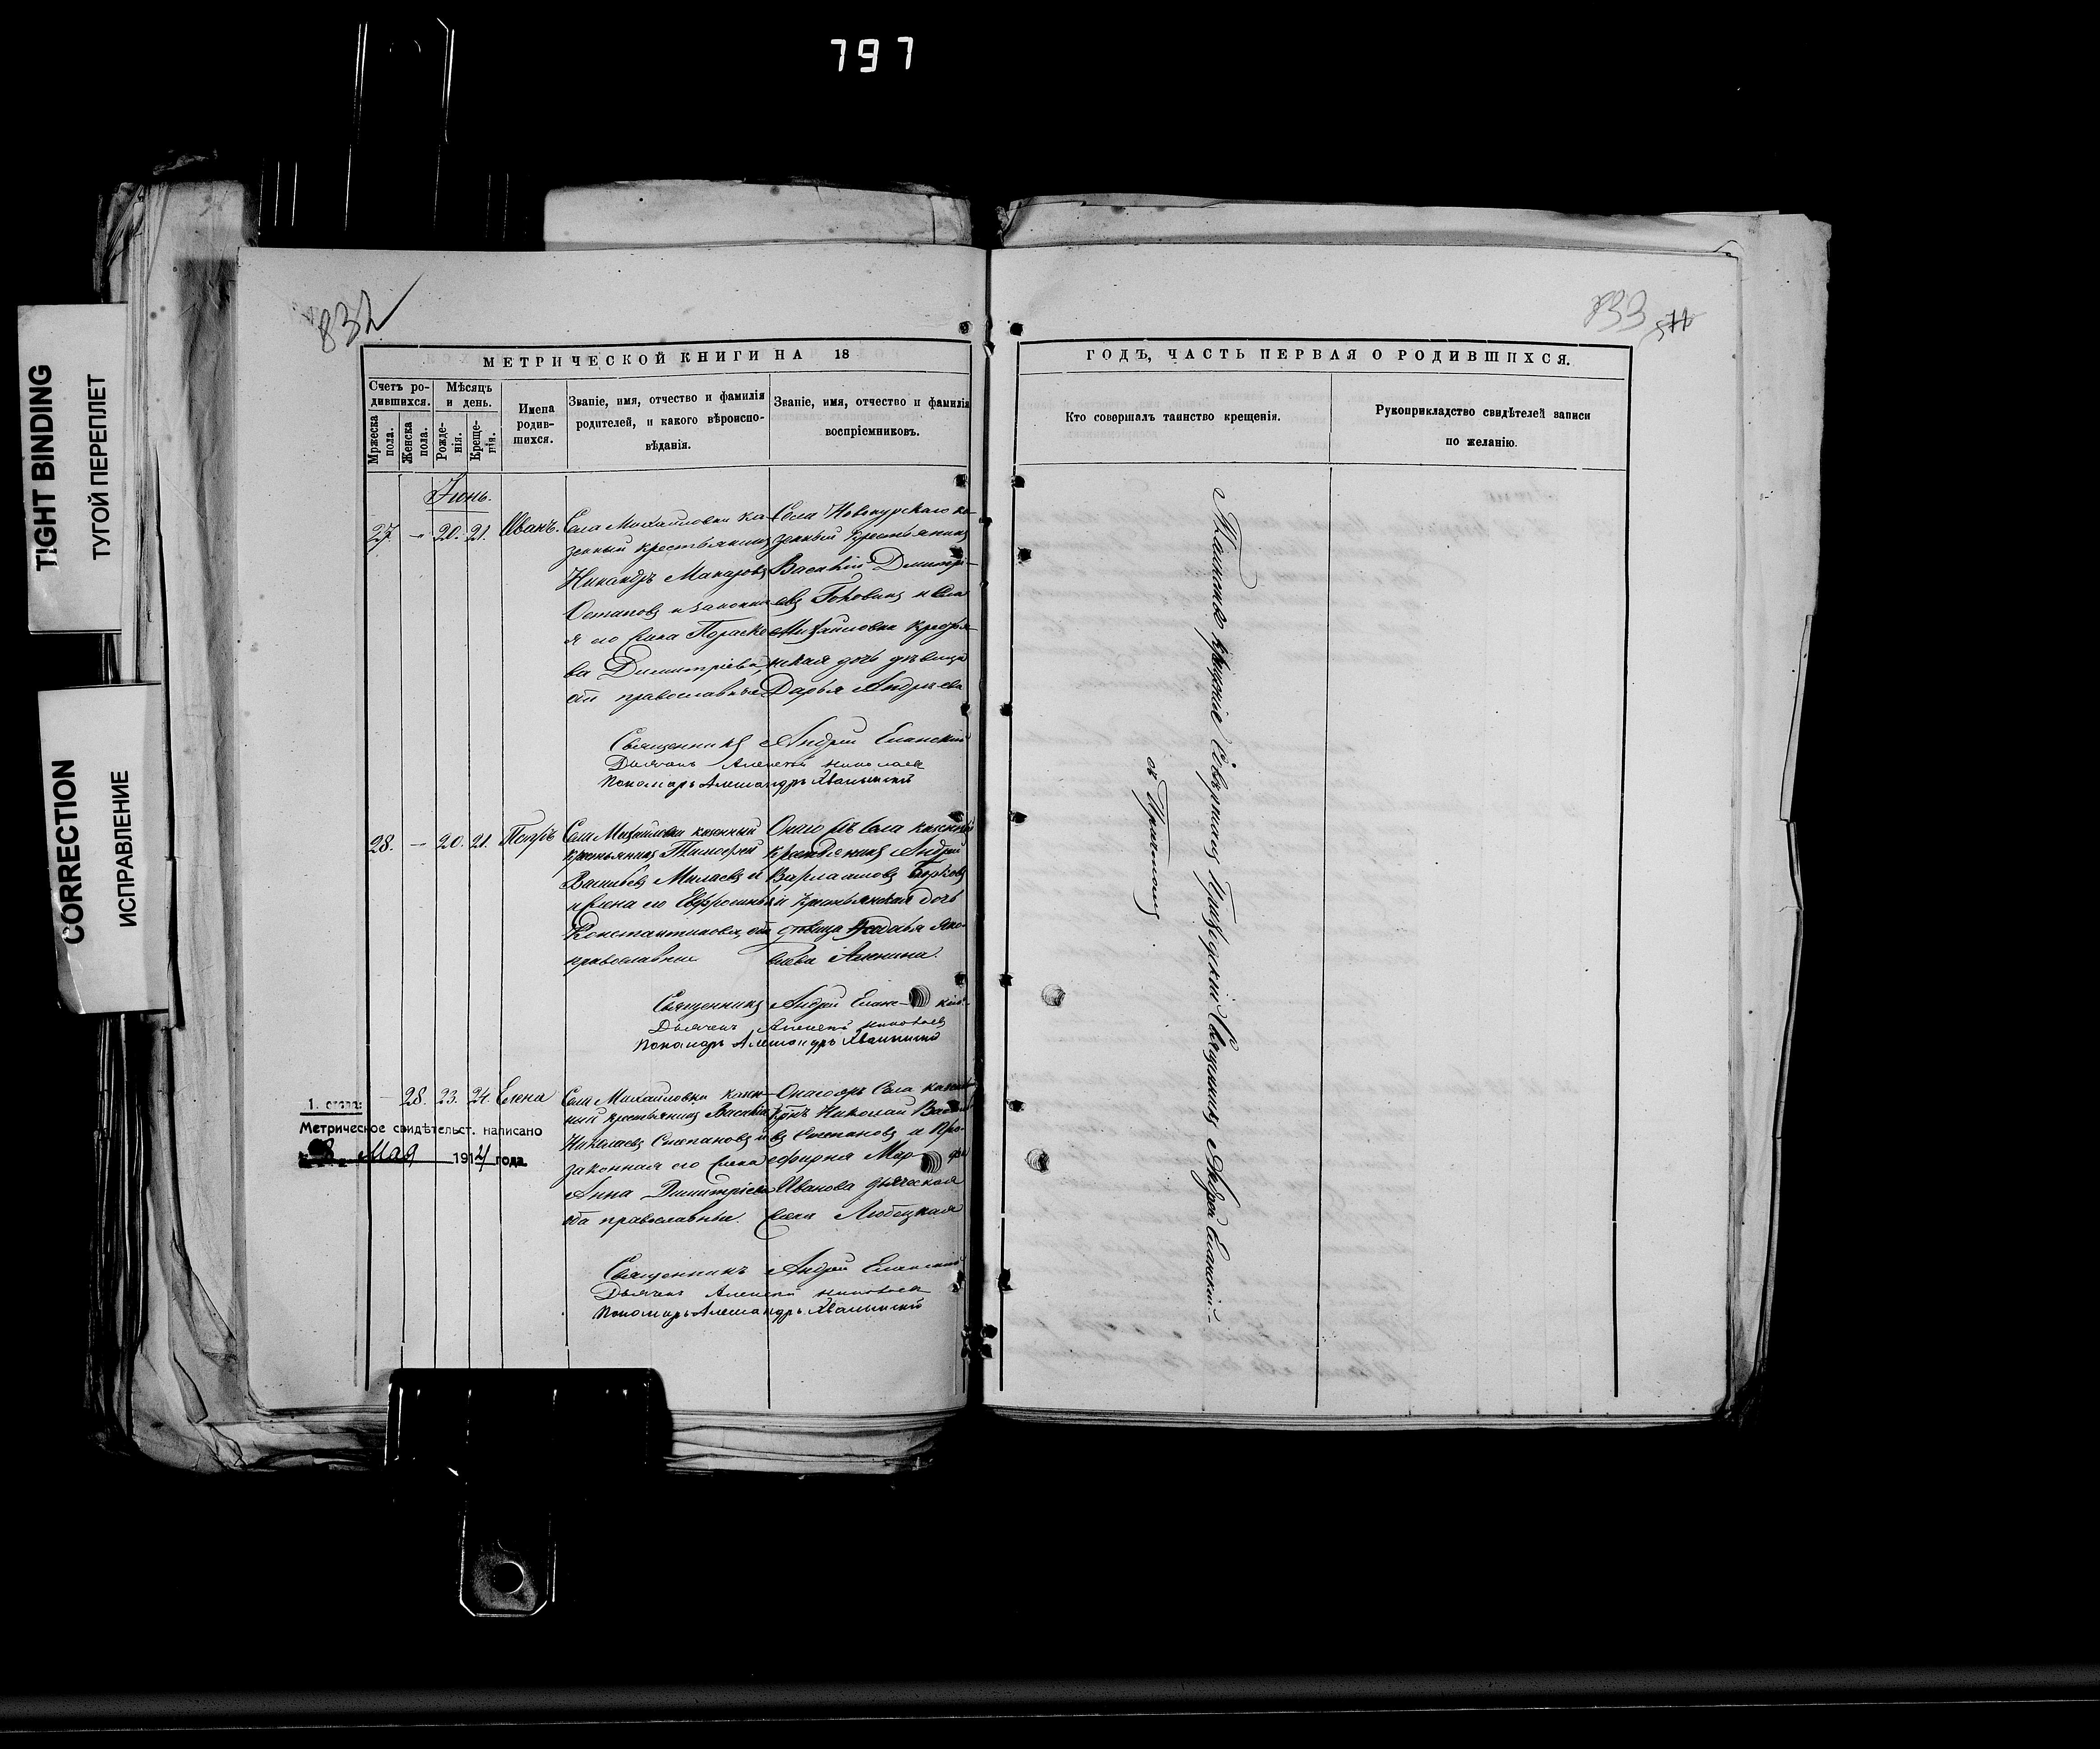 797
TIGHT BINDING
ТУГОЙ ПЕРЕПЛЕТ
CORRECTION
ИСПРАВЛЕНИЕ
832
МЕТРИЧЕСКОЙ КНИГИ НА 18
Счетъ ро-
дившихся.
Мѣсяцъ
и день.
Мужеска
пола.
Женска
пола.
Рожде-
нія.
Креще-
нія.
Имена
родив-
шихся.
Званіе, имя, отчество и фамилія
родителей, и какого вѣроиспо-
вѣданія.
Званіе, имя, отчество и фамилія
воспріемниковъ.
Іюнь.
27. - 20. 21. Иванъ.
Села Михайловки ка-
зенный крестьянинъ
Никандръ Макаровъ
Остаповъ и законна
я его жена Параско
ва Димитріева,
оба православные
Села Новокурскаго ка-
зенный крестьянинъ
Василій Димитрі-
евъ и Села
Михайловки крестья-
нская дочь дѣвица
Дарья Андреева
Священникъ Андрей Еланскій
Дьячекъ Алексѣй Николаев
Пономарь Александръ Хвалынскій
28. - 20. 21. Петръ
Села Михайловки казенный
крестьянинъ Тимофей
Васильевъ Милаевъ и
жена его Евфросинья
Константиновна, оба
православные
Онаго жъ Села казенный
крестьянинъ Андрей
Варлаамовъ
и крестьянская дочь
дѣвица Яко-
влева Аленина.
Священникъ Андрей Еланскій
Дьячекъ Алексѣй Николаев
Пономарь Александръ Хвалынскій
- 28. 23. 24. Елена
Села Михайловки казен-
ный крестьянинъ Василій
Николаевъ Степановъ и
законная его жена
Анна Димитріева
оба православные.
Онаго жъ Села казен
Николай Василь
въ Степановъ и Про-
сфирня Марфа
Иванова дьяческая
жена Любецкая
Метрическое свидѣтельст. написано
8 Мая 1914 года.
Священникъ Андрей Еланскій
Дьячекъ Алексѣй Николаев
Пономарь Александръ Хвалынскій
833
ГОДЪ, ЧАСТЬ ПЕРВАЯ О РОДИВШИХСЯ.
Кто совершалъ таинство крещенія.
Рукоприкладство свидѣтелей записи
по желанію.
Таинство крещенія Совершалъ Приходскій Священникъ Андрей Еланскій
съ Причтомъ.